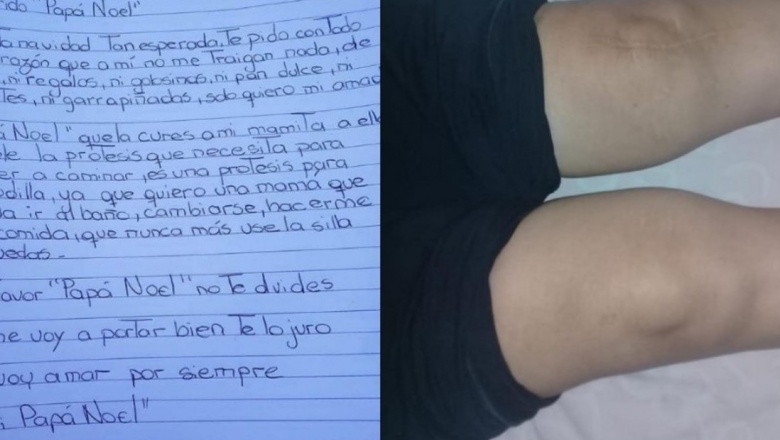 ido "Papá Noel"
a navidad Tan esperada. Te pido con Todo
razón que a mí no me Traigan nada, de
, ni regalos, ni golosinas, ni pan dulce, ni
Tes, ni garrapiñadas, solo quiero mi amad
á Noel" que la cures a mi mamita a ell
le la prótesis que necesita para
er a caminar, es una protesis para
odilla, ya que quiero una mamá que
a ir al baño, cambiarse, hacerme
comida, que nunca más use la silla
uedas.-
favor "Papá Noel" no Te olvides
me voy a portar bien Te lo juro
voy amar por siempre
i Papá Noel"